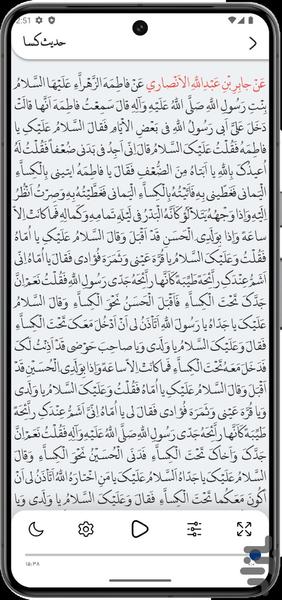 2:51
حدیث کسا
عَنْ جابِرِ بْنِ عَبْدِاللهِ الْاَنْصاريِّ عَنْ فاطِمَةَ الزَّهْراَّءِ عَلَيْهَا السَّلامُ
بِنْتِ رَسُولِ اللهِ صَلَّى اللهُ عَلَيْهِ وَآلِهِ قالَ سَمِعْتُ فاطِمَةَ اَنَّها قالَتْ
دَخَلَ عَلَىَّ اَبى رَسُولُ اللهِ فى بَعْضِ الاَْيّامِ فَقالَ السَّلامُ عَلَيْكِ يا
فاطِمَةُ فَقُلْتُ عَلَيْكَ السَّلامُ قالَ اِنّى اَجِدُ فى بَدَنى ضُعْفاً فَقُلْتُ لَهُ
اُعيذُكَ بِاللهِ يا اَبَتاهُ مِنَ الضُّعْفِ فَقَالَ يا فاطِمَةُ ايتينى بِالْكِساَّءِ
الْيَمانى فَغَطّينى بِهِ فَاَتَيْتُهُ بِالْكِساَّءِ الْيَمانى فَغَطَّيْتُهُ بِهِ وَصِرْتُ اَنْظُرُ
اِلَيْهِ وَاِذا وَجْهُهُ يَتَلاَْلَؤُ كَاَنَّهُ الْبَدْرُ فى لَيْلَةِ تَمامِهِ وَكَمالِهِ فَما كانَتْ اِلاّ
ساعَةً وَاِذا بِوَلَدِىَ الْحَسَنِ قَدْ اَقْبَلَ وَقالَ السَّلامُ عَلَيْكِ يا اُمّاهُ
فَقُلْتُ وَعَلَيْكَ السَّلامُ يا قُرَّةَ عَيْنى وَثَمَرَةَ فُؤادى فَقالَ يا اُمّاهُ اِنّى
اَشَمُّ عِنْدَكِ رائِحَةً طَيِّبَةً كَاَنَّها رائِحَةُ جَدّى رَسُولِ اللهِ فَقُلْتُ نَعَمْ اِنَّ
جَدَّكَ تَحْتَ الْكِساَّءِ فَاَقْبَلَ الْحَسَنُ نَحْوَ الْكِساَّءِ وَقالَ السَّلامُ
عَلَيْكَ يا جَدّاهُ يا رَسُولَ اللهِ اَتَاْذَنُ لى اَنْ اَدْخُلَ مَعَكَ تَحْتَ الْكِساَّءِ
فَقالَ وَعَلَيْكَ السَّلامُ يا وَلَدى وَيا صاحِبَ حَوْضى قَدْ اَذِنْتُ لَكَ
فَدَخَلَ مَعَهُ تَحْتَ الْكِساَّءِ فَما كانَتْ اِلاّ ساعَةً وَاِذا بِوَلَدِىَ الْحُسَيْنِ قَدْ
اَقْبَلَ وَقالَ السَّلامُ عَلَيْكِ يا اُمّاهُ فَقُلْتُ وَعَلَيْكَ السَّلامُ يا وَلَدى
وَيا قُرَّةَ عَيْنى وَثَمَرَةَ فُؤادى فَقالَ لى يا اُمّاهُ اِنّى اَشَمُّ عِنْدَكِ رائِحَةً
طَيِّبَةً كَاَنَّها رائِحَةُ جَدّى رَسُولِ اللهِ صَلَّى اللهُ عَلَيْهِ وَآلِهِ فَقُلْتُ نَعَمْ اِنَّ
جَدَّكَ وَاَخاكَ تَحْتَ الْكِساَّءِ فَدَنَى الْحُسَيْنُ نَحْوَ الْكِساَّءِ وَقالَ
السَّلامُ عَلَيْكَ يا جَدّاهُ اَلسَّلامُ عَلَيْكَ يا مَنِ اخْتارَهُ اللهُ اَتَاْذَنُ لى اَنْ
اَكُونَ مَعَكُما تَحْتَ الْكِساَّءِ فَقالَ وَعَلَيْكَ السَّلامُ يا وَلَدى وَيا
۱۵:۳۸